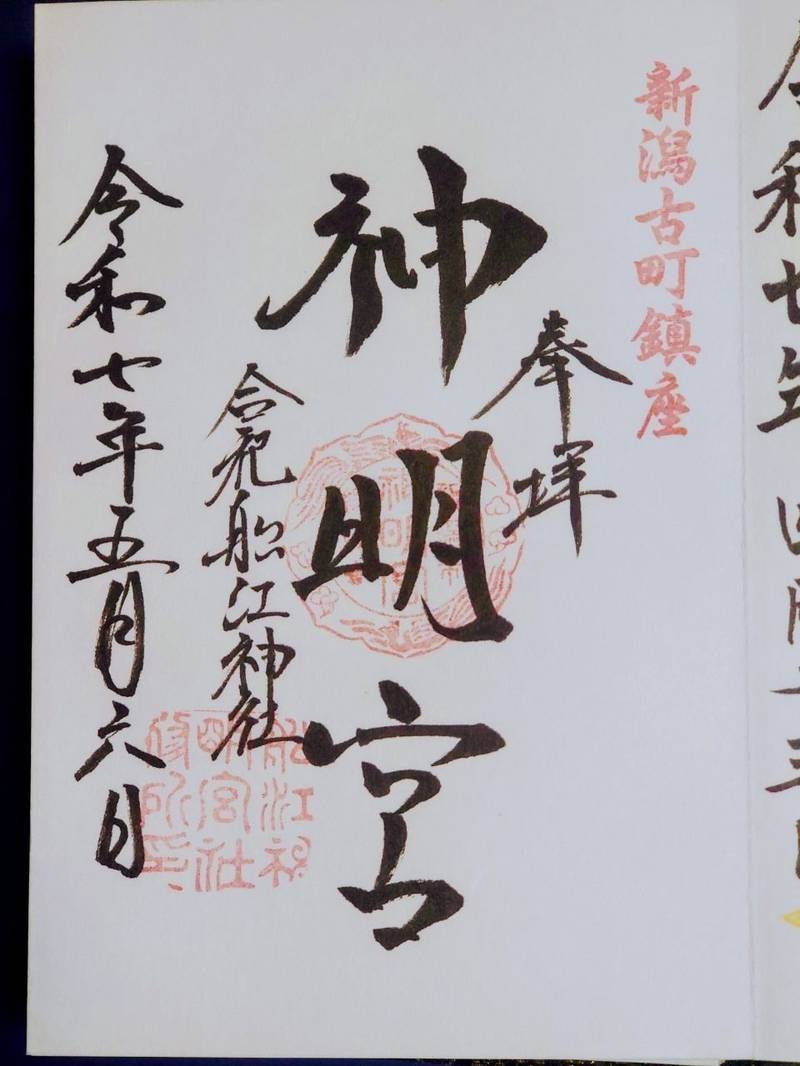 新潟古町鎮座
奉拝
神明宮
合祀船江神社
令和七年五月六日
船江神
明宮社
務所印
令和七年